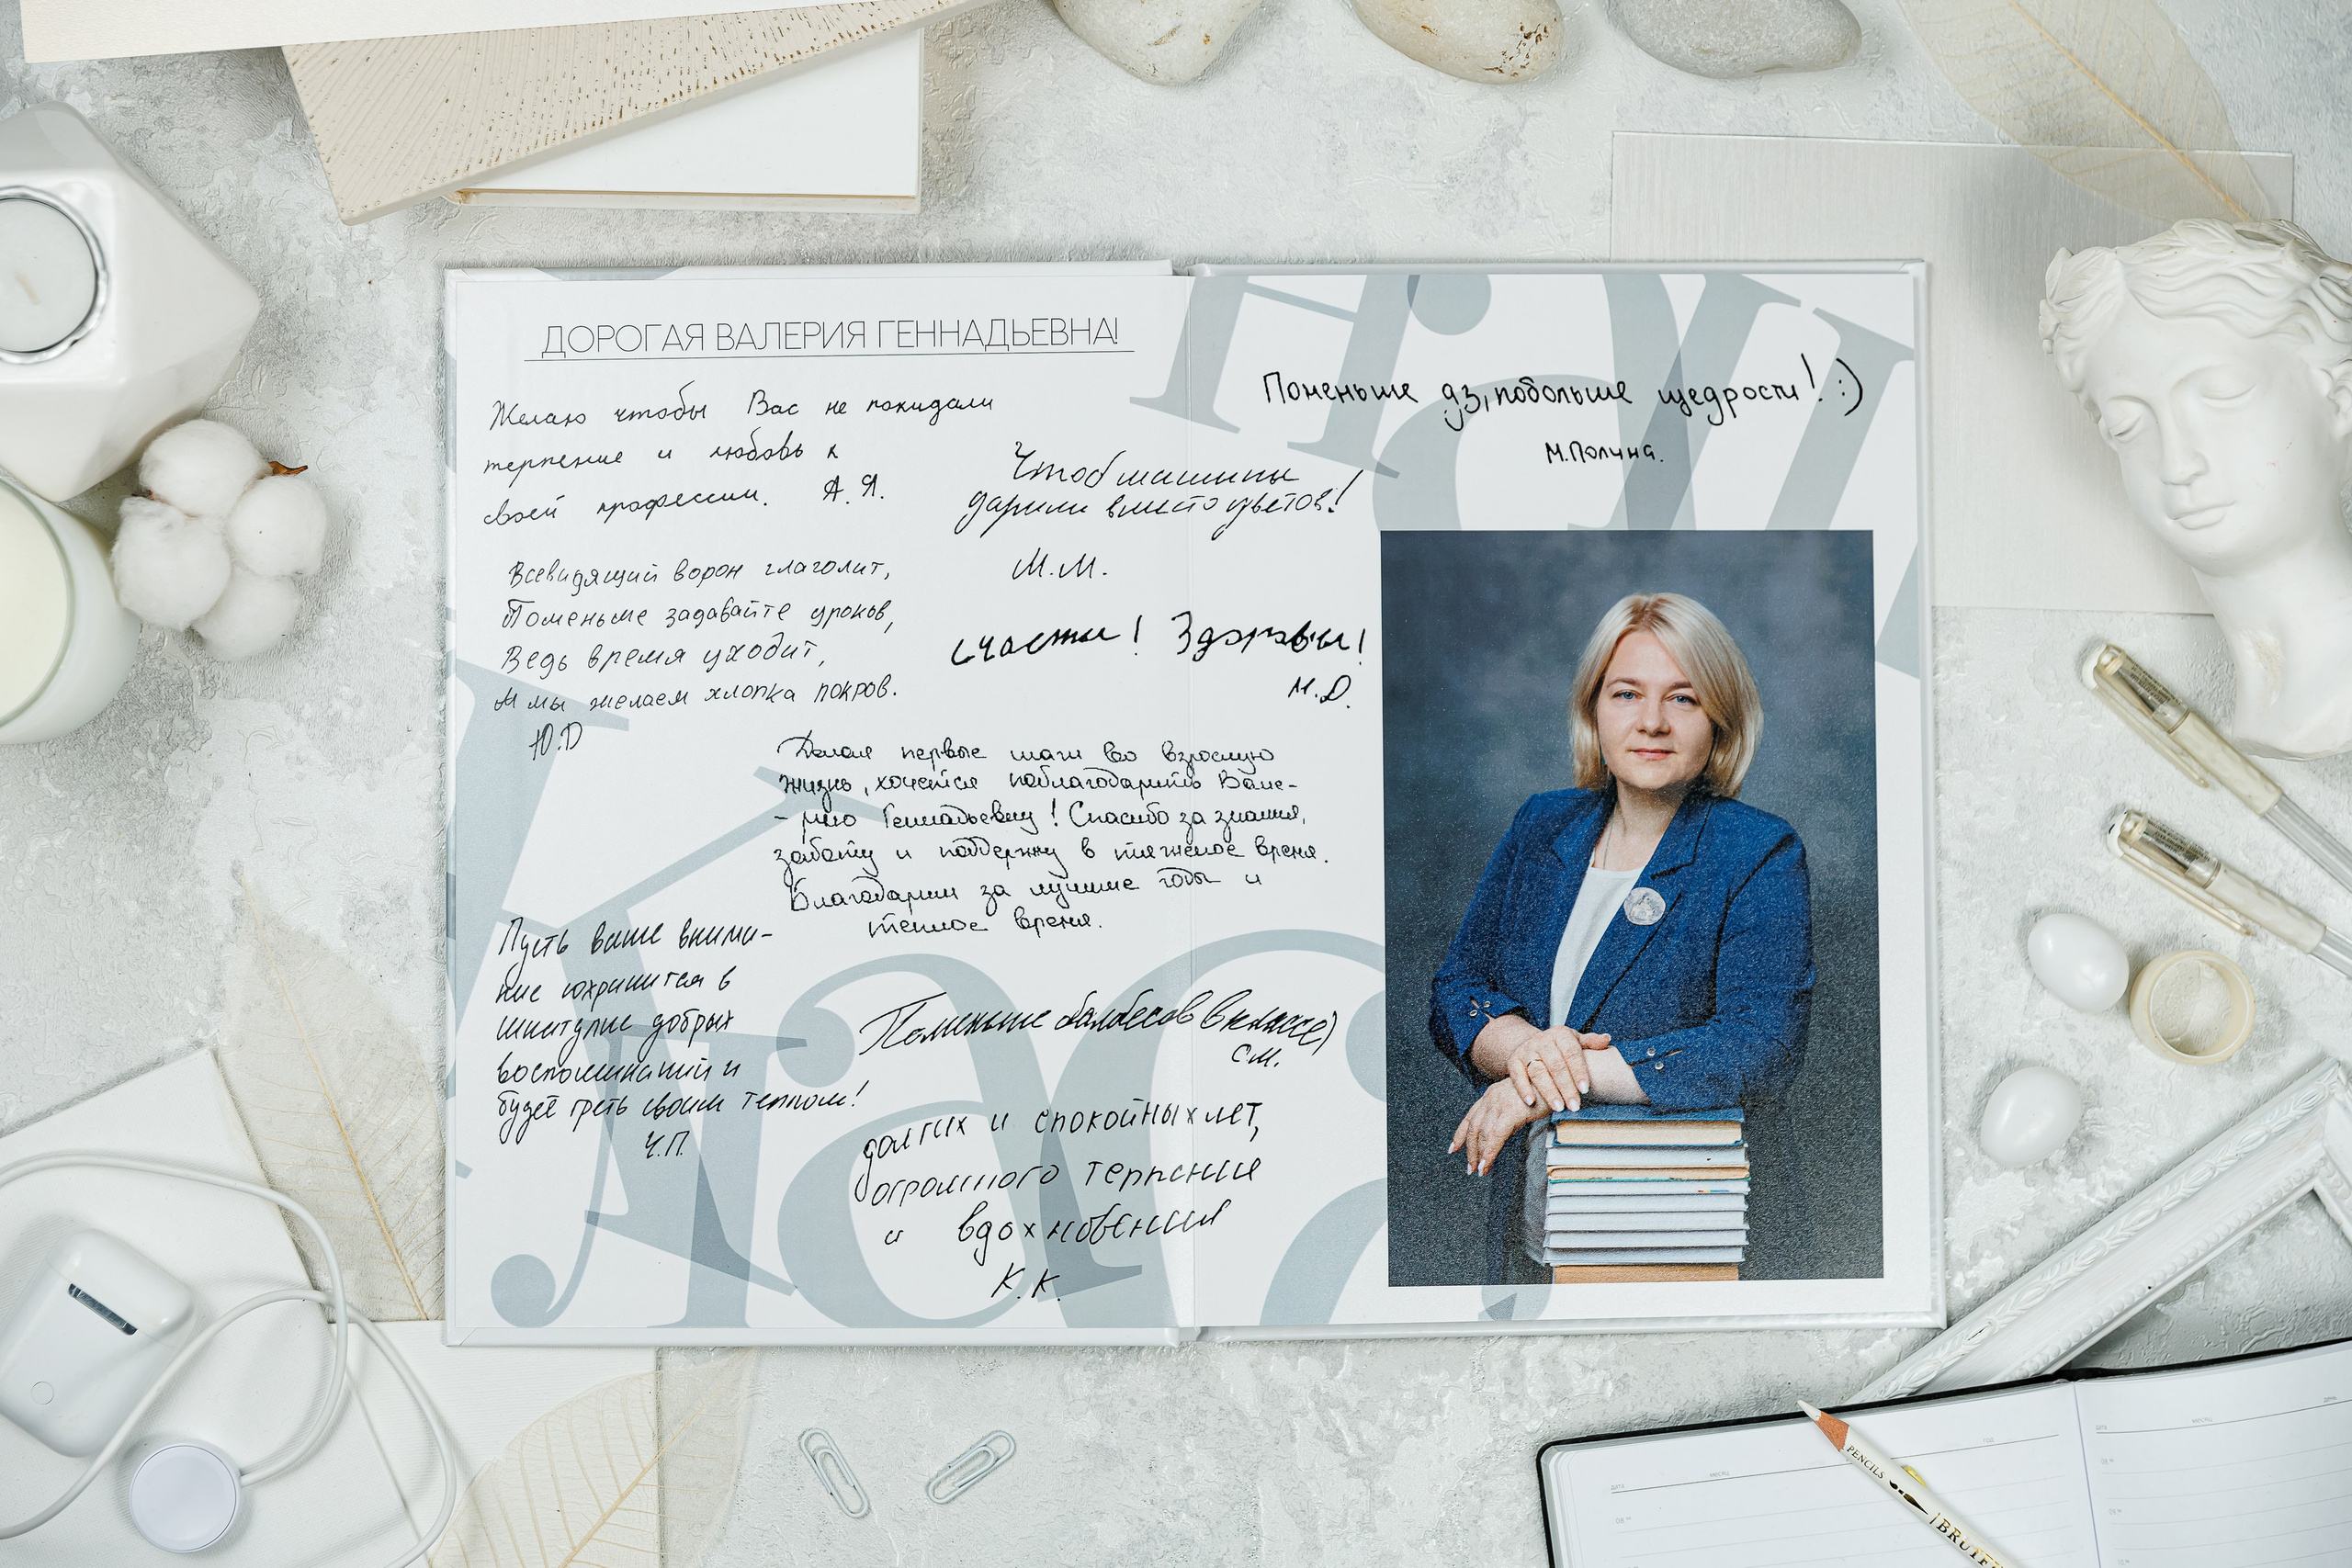 ДОРОГАЯ ВАЛЕРИЯ ГЕННАДЬЕВНА!
Желаю чтобы Вас не покидали
терпение и любовь к
своей профессии. А.Я.
Всевидящий ворон глаголит,
Поменьше задавайте уроков,
Ведь время уходит,
И мы желаем хлопка покров.
Ю.D
Чтоб машины
дарили вместо цветов!
М.М.
счастья! Здоровья!
М.D.
Делая первые шаги во взрослую
жизнь, хочется поблагодарить Вале-
-рию Геннадьевну! Спасибо за знания,
заботу и поддержку в тяжелое время.
Благодарим за лучшие годы и
теплое время.
Пусть ваше внима-
ние сохранится в
шкатулке добрых
воспоминаний и
будет греть своим теплом!
Ч.П.
Поменьше балбесов в классе)
С.М.
долгих и спокойных лет,
огромного терпения
и вдохновения
К.К.
Поменьше дз, побольше щедрости! :)
М.Полина.
PENCILS